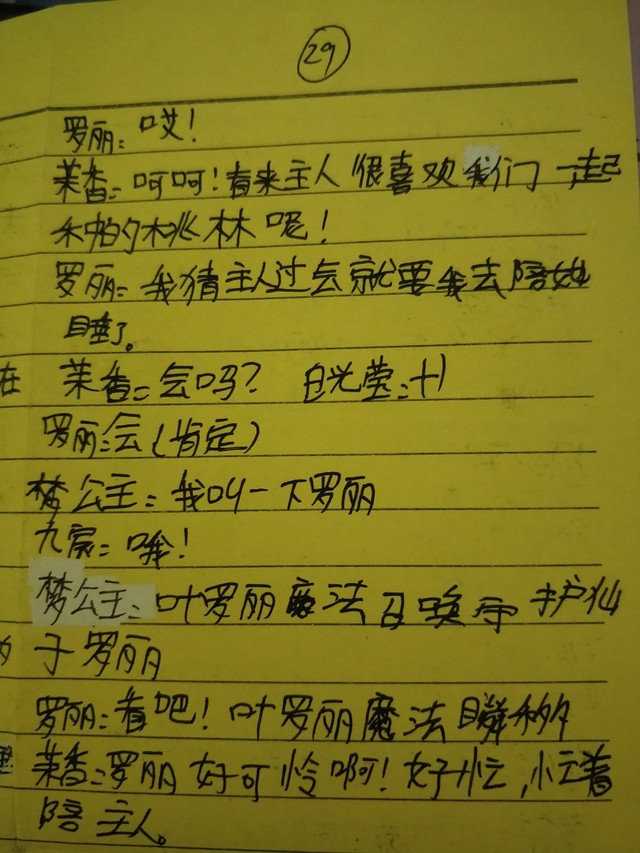 29
罗丽：哎！
茉香：呵呵！看来主人很喜欢我们一起
和帕的桃林呢！
罗丽：我猜主人过会就要我去陪她
睡了。
在 茉香：会吗？ 白光莹：+1
罗丽：会（肯定）
梦公主：我叫一下罗丽
九宸：哦！
梦公主：叶罗丽魔法召唤守护仙
子罗丽
罗丽：看吧！叶罗丽魔法瞬移
茉香：罗丽好可怜啊！好忙，忙着
陪主人。